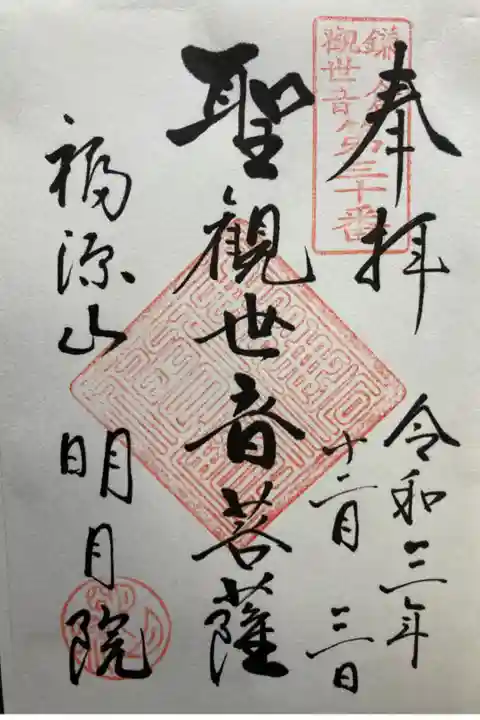 奉拝
鎌倉
観世音第三十番
令和三年
十二月三日
聖観世音菩薩
福源山明月院